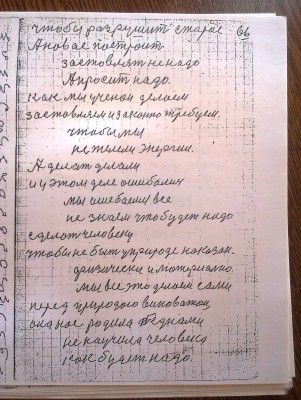 чтобы разрушит старое 66
А новое построит
заставлят не надо
А просит надо.
как мы ученои делаем
заставляем и законно требуем.
чтобы мы
не телели энергии.
А делат делали
и и этом деле ошибались
мы ошибаемся все
не знаем что будет надо
сделат человеку
чтобы не быт у природе наказан.
физически и материално.
мы все это делаем сами
перед природою виноваты
она нас родила бедними
не научила человека
как будет надо.